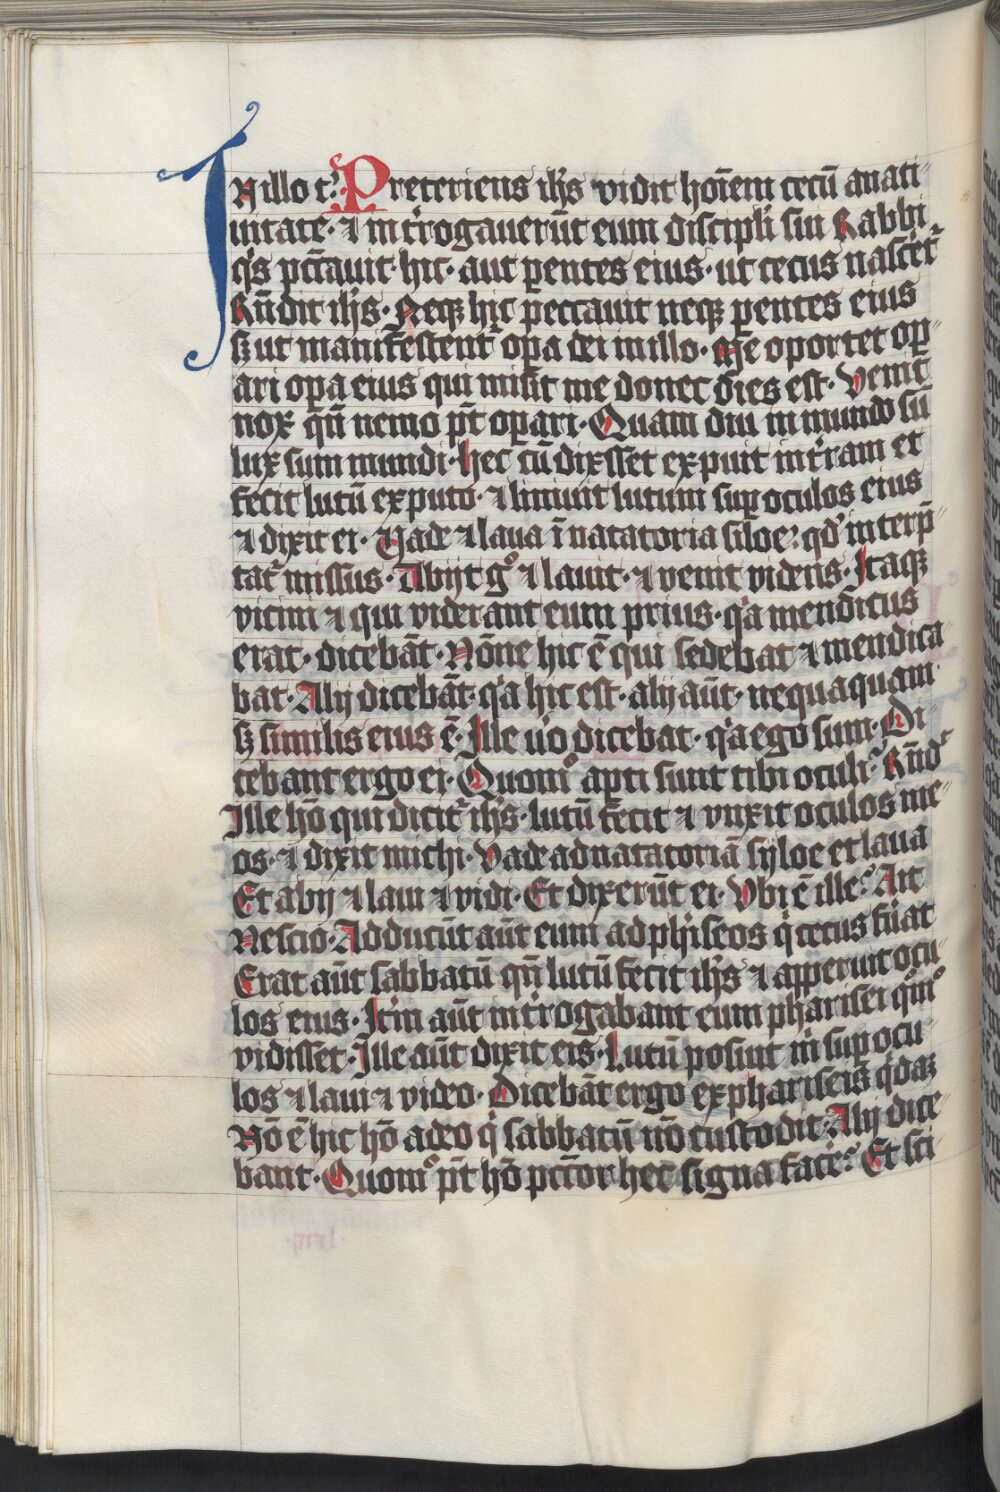 IN illo t̄. Preteriens ih̄s vidit hoīem cecū anati
uitate· ⁊ int̓rogauerūt eum discipl̓i sui Rabbi
q̓s pcc̄auit hic· aut ꝑentes eius· ut cecus nasceret̓
Rn̄dit ih̄s· Neqꝫ hic peccauit neqꝫ ꝑentes eius
sꝫ ut manifestent̓ oꝑa dei in illo· Me oportet oꝑ
ari oꝑa eius qui misit me donec dies est· Venit
nox qn̄ nemo pt̄ oꝑari· Quam diu in mundo sū
lux sum mundi· Hec cū dixisset expuit in t̓ram et
fecit lutū ex puto· ⁊ liniuit lutum suꝑ oculos eius
⁊ dixit ei· Uade ⁊ laua ī natatoria siloe· qd̓ interp̄
tat̓ missus· Abijt gͦ ⁊ lauit· ⁊ venit videns· Itaqꝫ
vicini ⁊ qui viderant eum prius· q̓a mendicus
erat· dicebāt· Nōne hic ē qui sedebat ⁊ mendica
bat· Alij dicebāt· q̓a hic est· alij aūt· nequaquam
sꝫ similis eius ē· Ille u̓o dicebat· q̓a ego sum· Di
cebant ergo ei· Quomͦ apti sunt tibi oculi· Rn̄dt
Ille hō qui dicit̓ ih̄s· lutū fecit ⁊ vnxit oculos me
os· ⁊ dixit michi· Vade ad natatoriā syloe et laua
Et abij ⁊ laui ⁊ vidi· Et dixerūt ei· Vbi ē ille· Ait
Nescio· Adducūt aūt eum ad ph̓iseos q̓ cecus fūat
Erat aūt sabbatū qn̄ lutū fecit ih̄s ⁊ apperuit ocu
los eius· It̓m aūt int̓rogabant eum pharisei qm̄ͦ
vidisset· Ille aūt dixit eis· Lutū posuit m̓ suꝑ ocu
los ⁊ laui ⁊ video· Dicebāt ergo ex phariseis q̓daꝫ
Nō ē hic hō a deo q̓ sabbatū nō custodit· Alij dice
bant· Quomͦ pt̄ hō pcc̄or hec signa face· Et sci